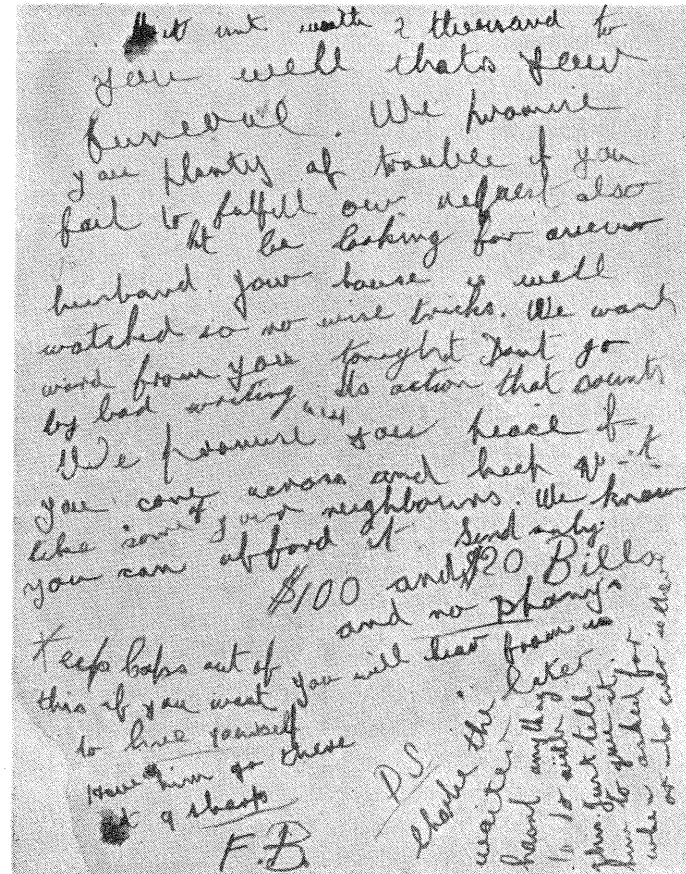 it isnt worth 2 thousand to
you well thats your
funeral. We promise
you planty of trouble if you
fail to fulfill our request also
be looking for
husband. your house is well
watched so no wise tricks. We want
word from you tonight Dont go
by bad writing its action that counts
We promise you peace if
you come across and keep
like some of your neighbours. We know
you can afford it Send only
$100 and $20 Bills
and no phonys
Keep Cops out of
this if you want
to live yourself
Have him go there
at 9 sharp
F.B.
you will hear from us
later
P.S.
Charlie the
waiter
hasnt anything
to do with
this. Just tell
him to give it
when asked for
or who ever is there